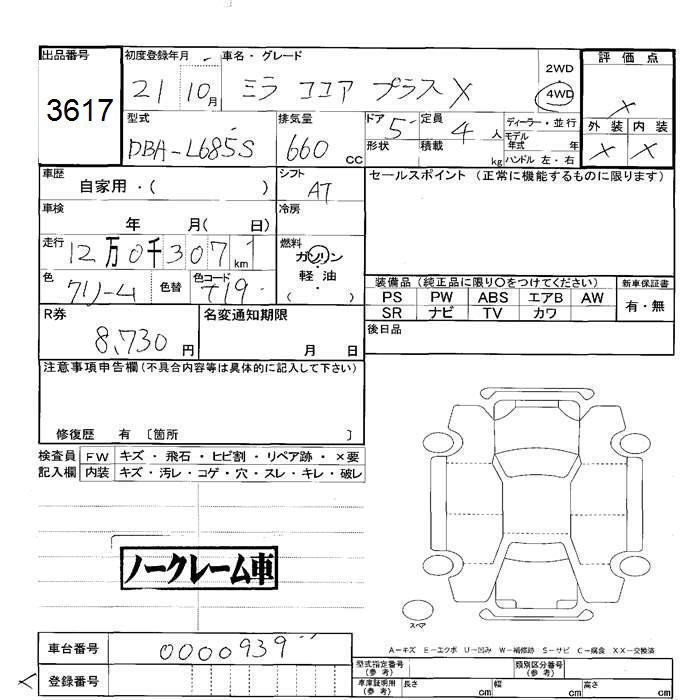 出品番号
3617
初度登録年月
21 10月
車名・グレード
ミラ ココア プラス X
2WD
4WD
評価点
×
外装 内装
× ×
型式
DBA-L685S
排気量
660 cc
ドア 5
形状
定員 4 人
積載 kg
ディーラー・並行
モデル
年式 年
ハンドル 左・右
車歴
自家用・( )
シフト
AT
車検
年 月( 日)
冷房
走行
12万0千307 km
燃料
ガソリン
軽・油
( )
色
クリーム
色替
色コード
T19
セールスポイント (正常に機能するものに限ります)
装備品 (純正品に限り○をつけてください)
新車保証書
PS PW ABS エアB AW
SR ナビ TV カワ
有・無
後日品
R券
8,730 円
名変通知期限
月 日
注意事項申告欄(不具合内容等は具体的に記入して下さい)
修復歴 有 〔箇所 〕
検査員
記入欄
FW キズ・飛石・ヒビ割・リペア跡・×要
内装 キズ・汚レ・コゲ・穴・スレ・キレ・破レ
ノークレーム車
スペア
A-キズ E-エクボ U-凹み W-補修跡 S-サビ C-腐食 XX-交換済
車台番号
0000939
登録番号
型式指定番号
(参考)
類別区分番号
(参考)
車庫証明用
(参考)
長さ cm
幅 cm
高さ cm